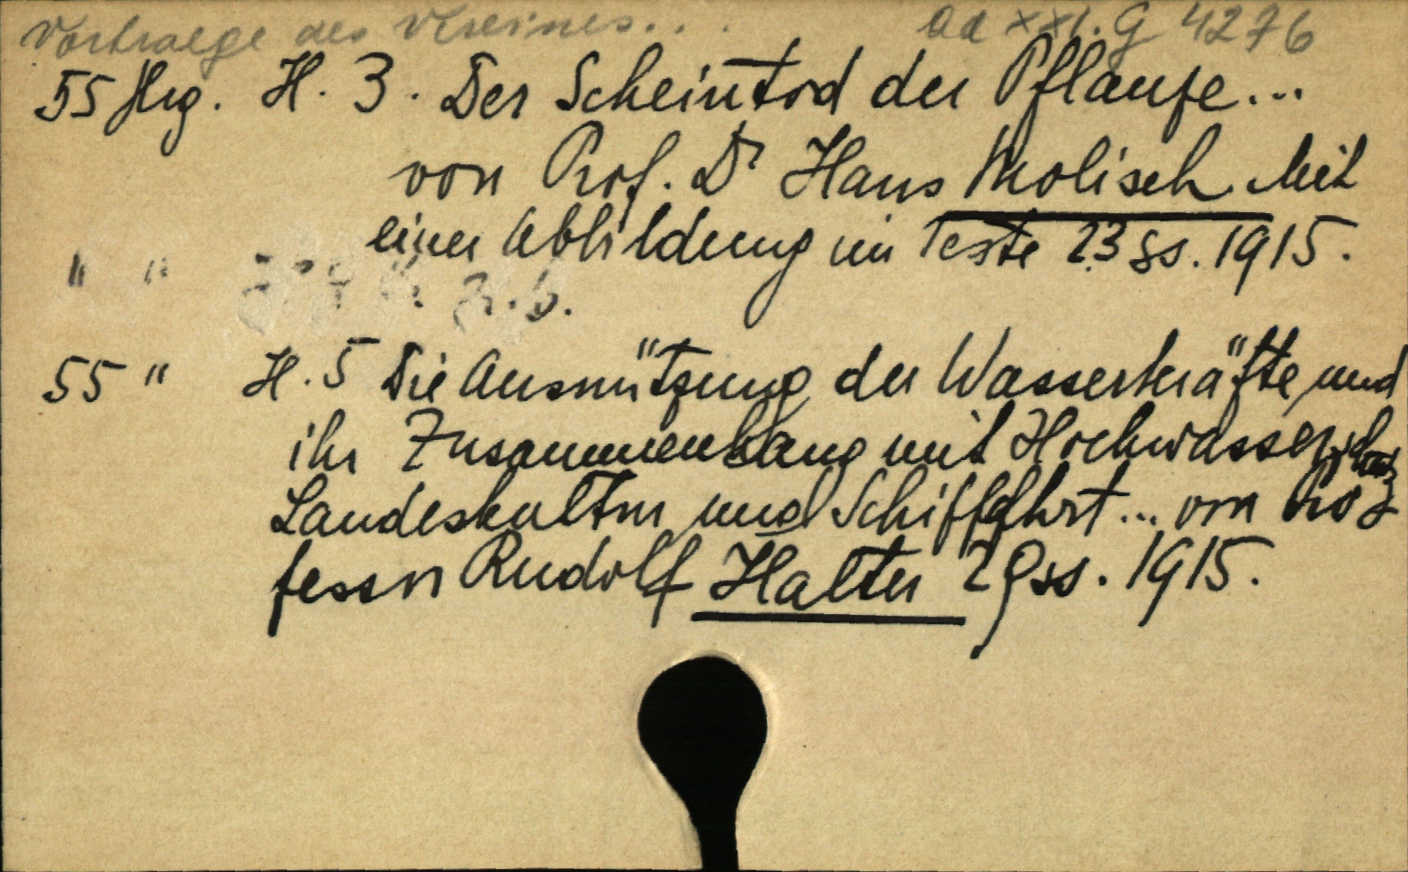 Vortraege des Vereines...
ad XXI. G 4276
55 Jhrg. H. 3. Der Scheintod der Pflanze...
von Prof. Dr Hans Molisch Mit
einer Abbildung im Texte 23 ss. 1915.
" "
55 " H. 5 Die Ausnützung der Wasserkräfte und
ihr Zusammenhang mit Hochwasserschutz
Landeskultur und Schiffahrt... von Pro
fessor Rudolf Halter 29 ss. 1915.